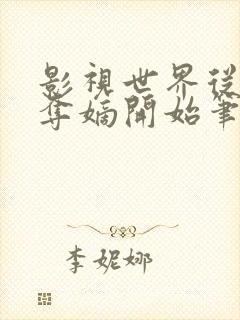 影視世界從
奪嫡開始筆
李妮娜